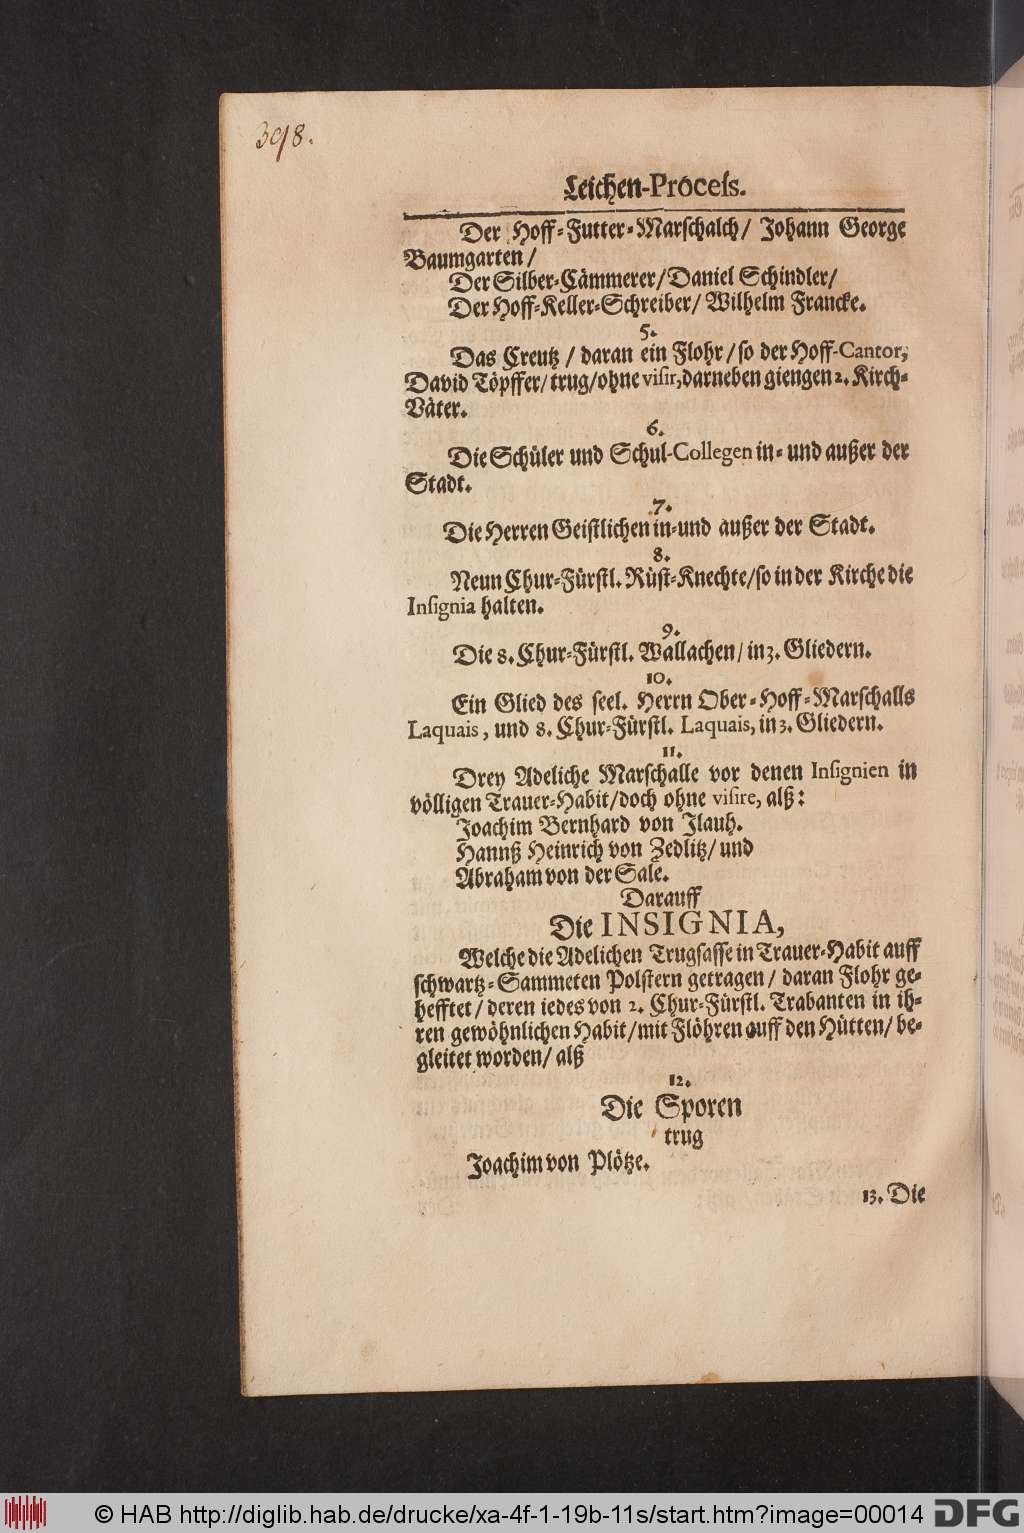 398.
Leichen-Proceſs.
Der Hoff-Futter-Marſchalch/ Johann George
Baumgarten/
Der Silber-Cämmerer/ Daniel Schindler/
Der Hoff-Keller-Schreiber/ Wilhelm Francke.
5.
Das Creutz/ daran ein Flohr/ ſo der Hoff-Cantor,
David Töpffer/ trug/ ohne viſir, darneben giengen 2. Kirch-
Väter.
6.
Die Schüler und Schul-Collegen in- und außer der
Stadt.
7.
Die Herren Geiſtlichen in- und außer der Stadt.
8.
Neun Chur-Fürſtl. Rüſt-Knechte/ ſo in der Kirche die
Inſignia halten.
9.
Die 8. Chur-Fürſtl. Wallachen/ in 3. Gliedern.
10.
Ein Glied des ſeel. Herrn Ober-Hoff-Marſchalls
Laquais, und 8. Chur-Fürſtl. Laquais, in 3. Gliedern.
11.
Drey Adeliche Marſchalle vor denen Inſignien in
völligen Trauer-Habit/ doch ohne viſire, alß:
Joachim Bernhard von Ilauh.
Hannß Heinrich von Zedlitz/ und
Abraham von der Sale.
Darauff
Die INSIGNIA,
Welche die Adelichen Trugſaſſe in Trauer-Habit auff
ſchwartz-Sammeten Polſtern getragen/ daran Flohr ge-
hefftet/ deren iedes von 2. Chur-Fürſtl. Trabanten in ih-
ren gewöhnlichen Habit/ mit Flöhren auff den Hütten/ be-
gleitet worden/ alß
12.
Die Sporen
trug
Joachim von Plötze.
13. Die
© HAB http://diglib.hab.de/drucke/xa-4f-1-19b-11s/start.htm?image=00014
DFG